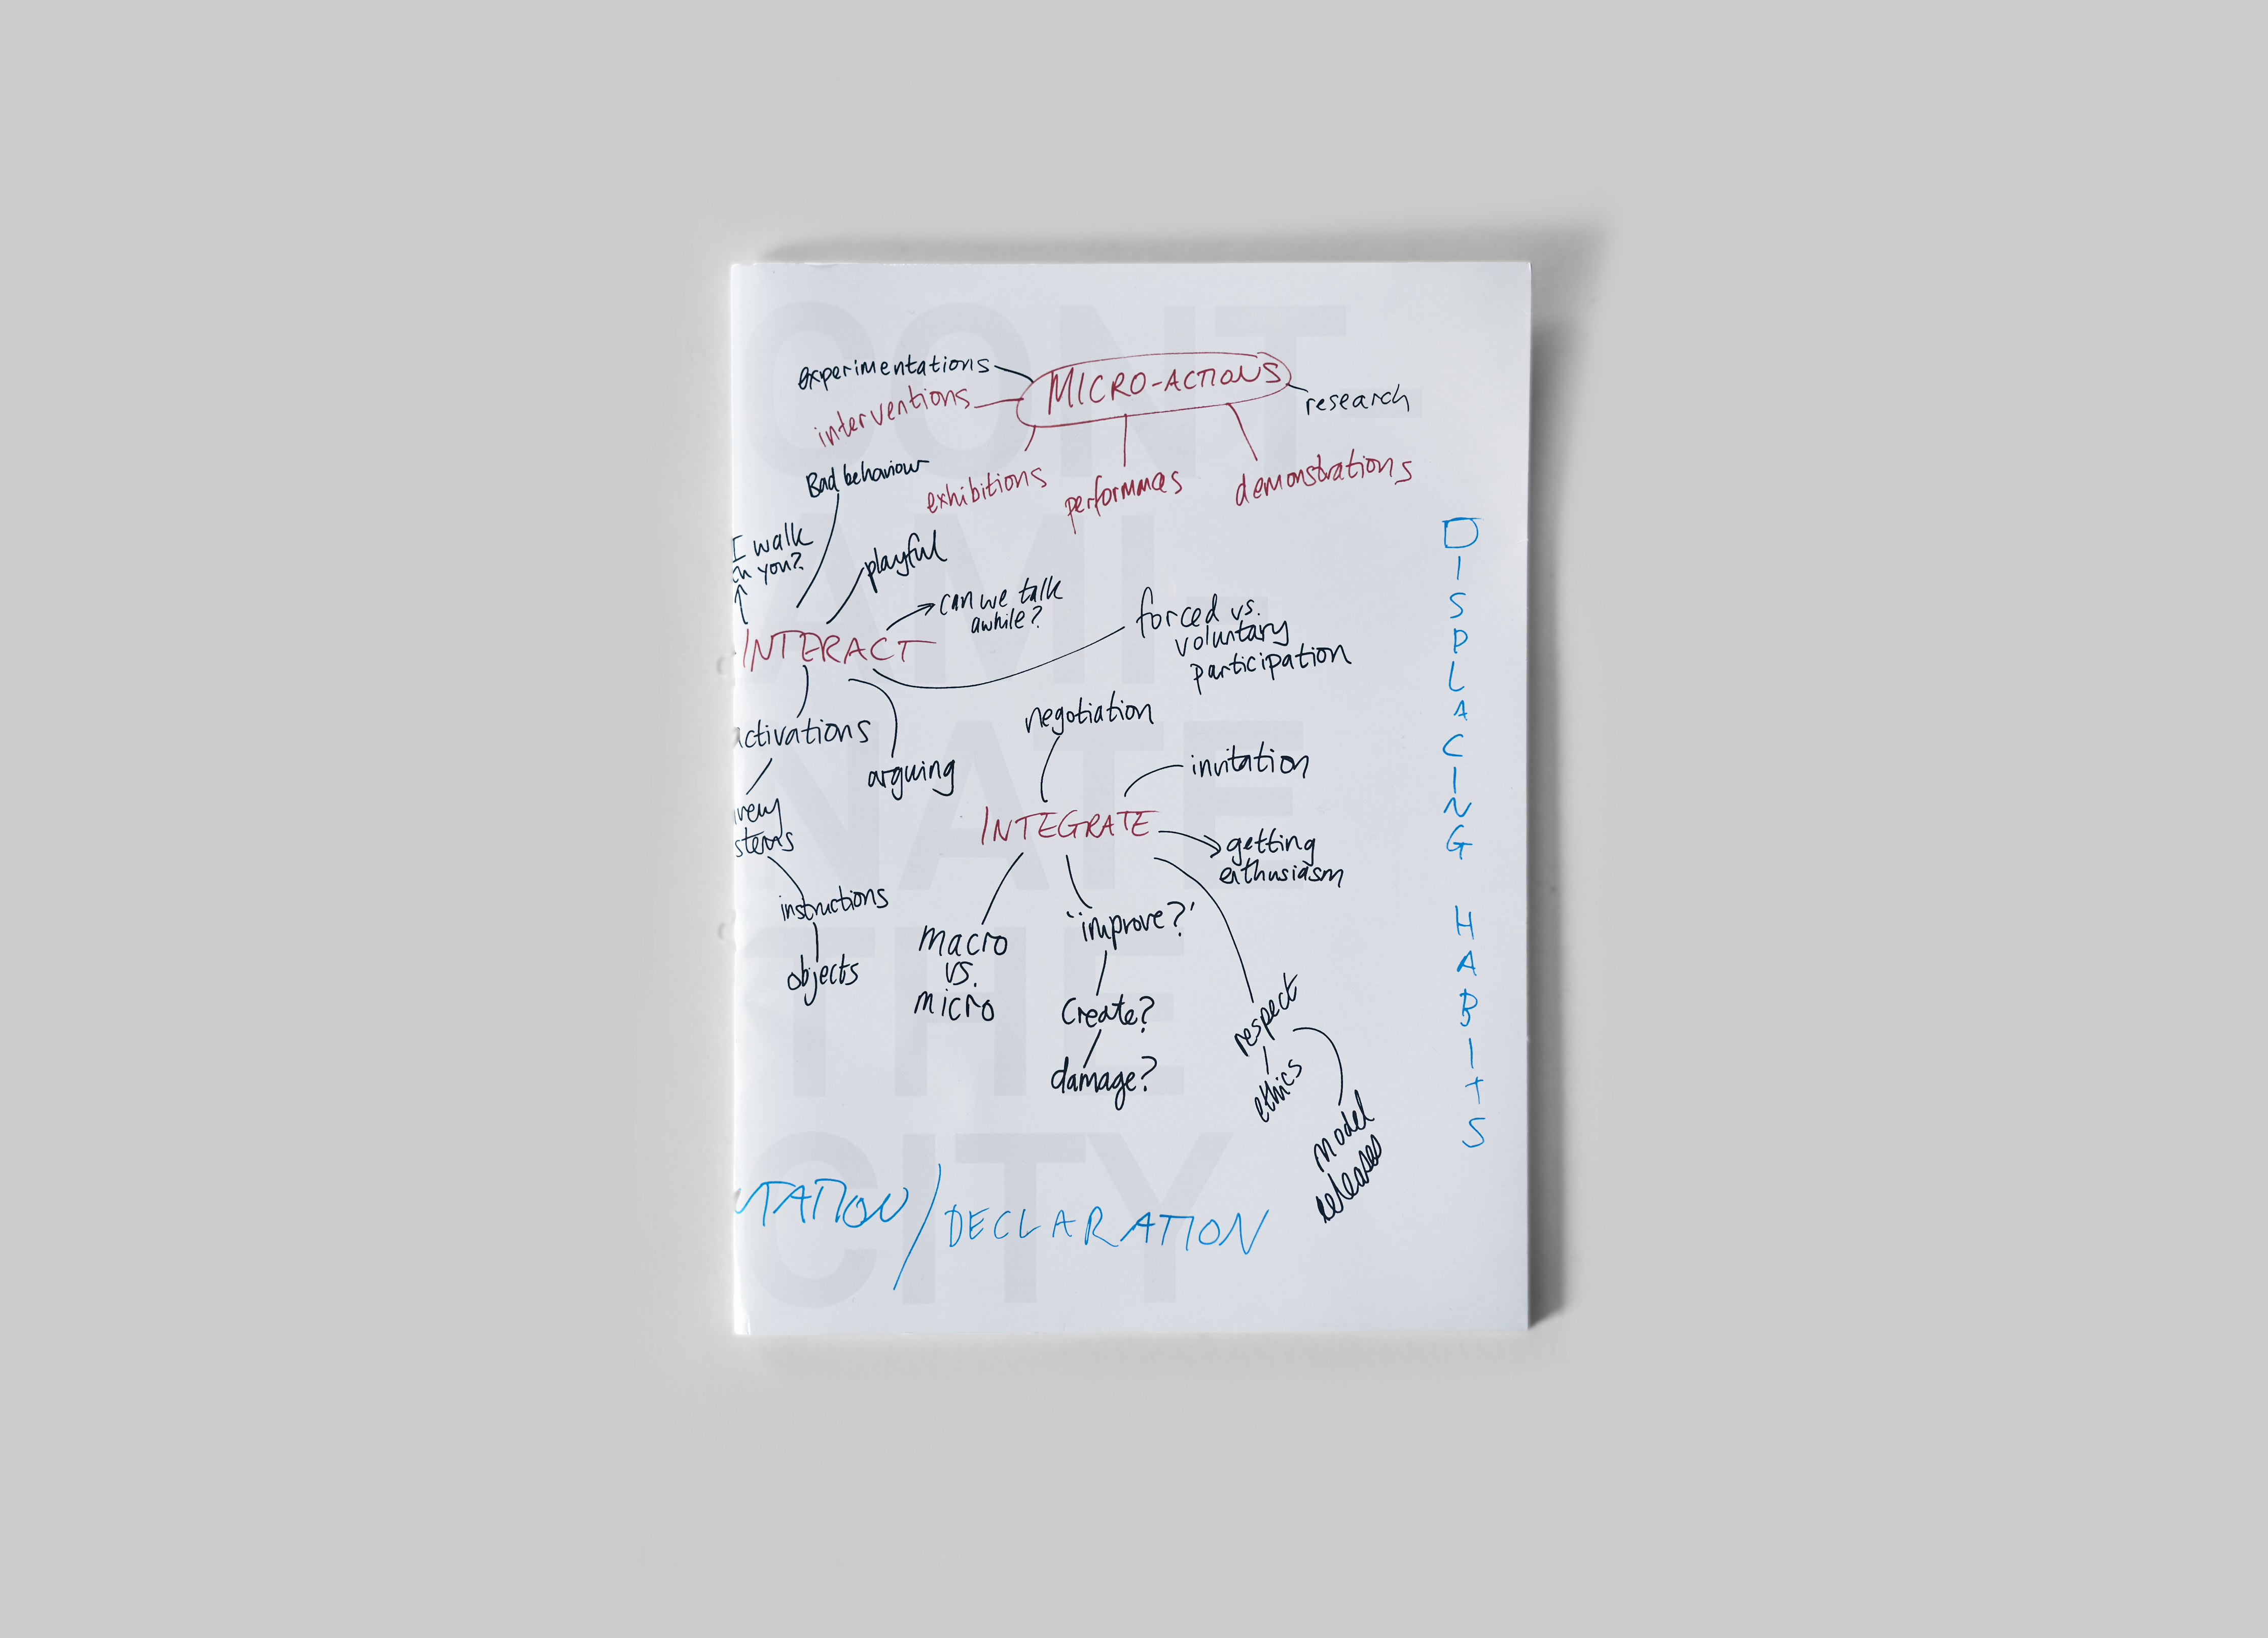 CONT-
AMI-
NATE
THE
CITY
experimentations
MICRO-ACTIONS
research
interventions
exhibitions
performmces
demonstrations
Bad behaviour
I walk
you?
playful
can we talk
awhile?
INTERACT
forced vs.
voluntary
participation
activations
arguing
stems
instructions
objects
negotiation
invitation
INTEGRATE
getting
enthusiasm
macro
vs.
micro
"improve?'
Create?
damage?
respect
ethics
model
releases
NTATION/DECLARATION
DISPLACING HABITS